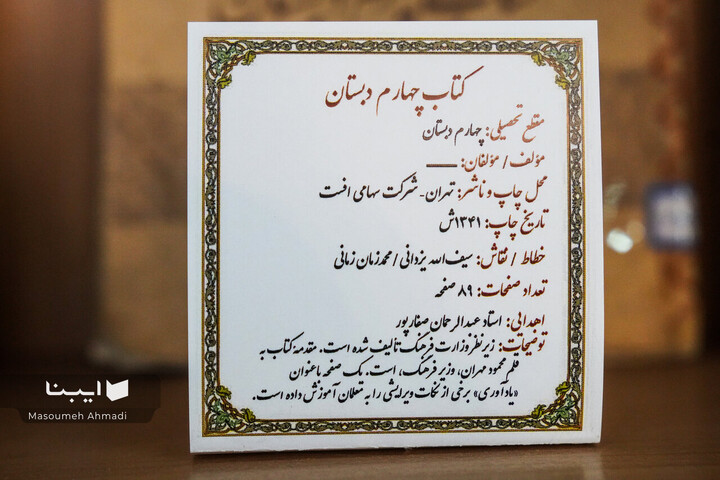 کتاب چهارم دبستان
مقطع تحصیلی: چهارم دبستان
مؤلف / مؤلفان: ــــــ
محل چاپ و ناشر: تهران- شرکت سهامی افست
تاریخ چاپ: ۱۳۴۱ش
خطاط / نقاش: سیف‌الله یزدانی / محمدزمان زمانی
تعداد صفحات: ۸۹ صفحه
اهدایی: استاد عبدالرحمان صفارپور
توضیحات: زیرنظر وزارت فرهنگ تألیف شده است. مقدمهٔ کتاب به
قلم محمود مهران، وزیر فرهنگ، است. یک صفحه با عنوان
«یادآوری» برخی از نکات ویرایشی را به متعلمان آموزش داده است.
ایبنا
Masoumeh Ahmadi